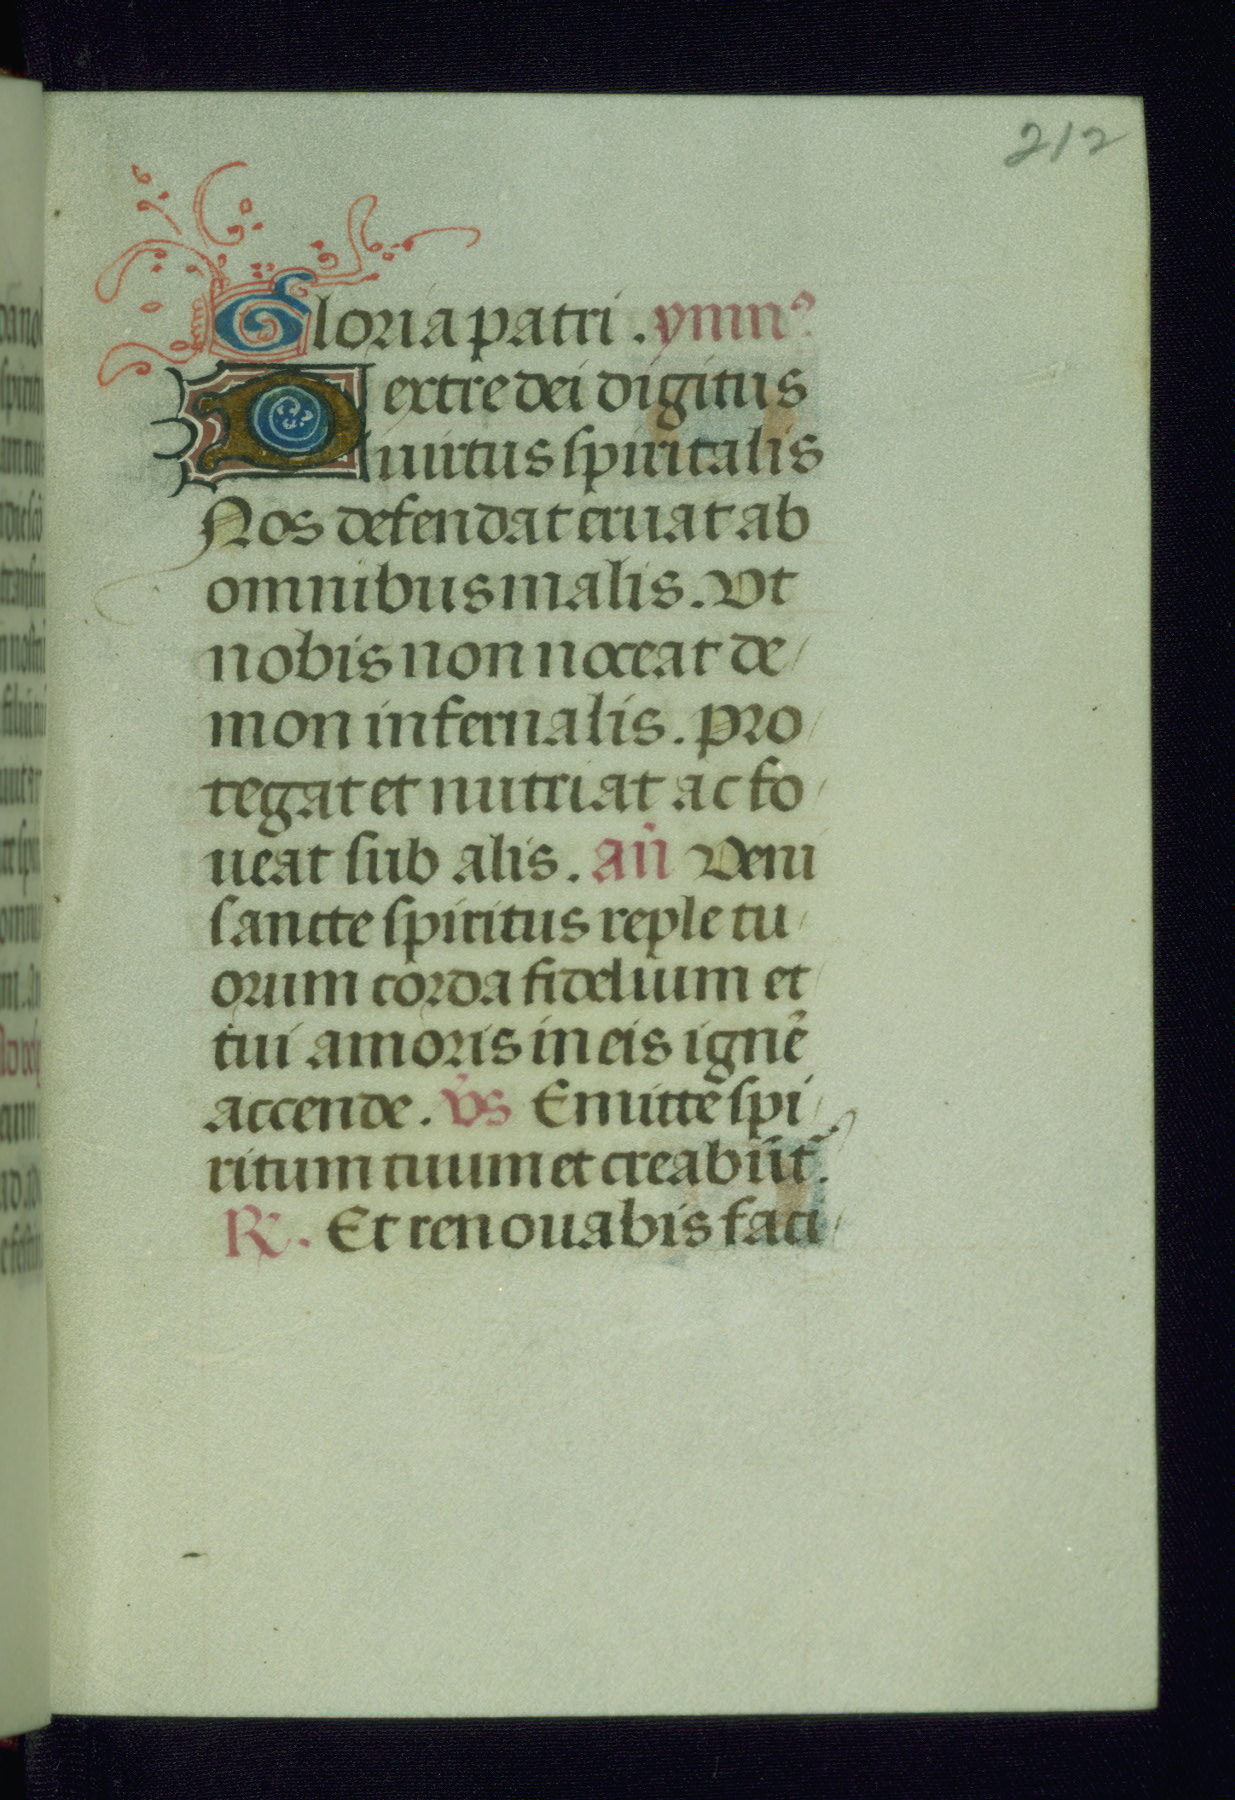 212
Gloria patri . ymnꝰ
Dextre dei digitus
uirtus spiritalis
Nos defendat eruat ab
omnibus malis. Ut
nobis non noceat de/
mon infernalis. Pro/
tegat et nutriat ac fo/
ueat sub alis. an̄ Veni
sancte spiritus reple tu/
orum corda fidelium et/
tui amoris in eis ignē
accende. v̄s Emitte spi/
ritum tuum et creabūt.
℟. Et renouabis faci/